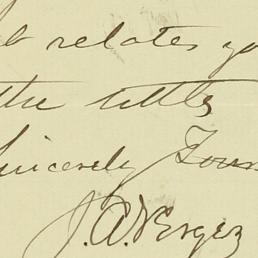 relates yo
the title
Sincerely Yours
J. A. Vergez